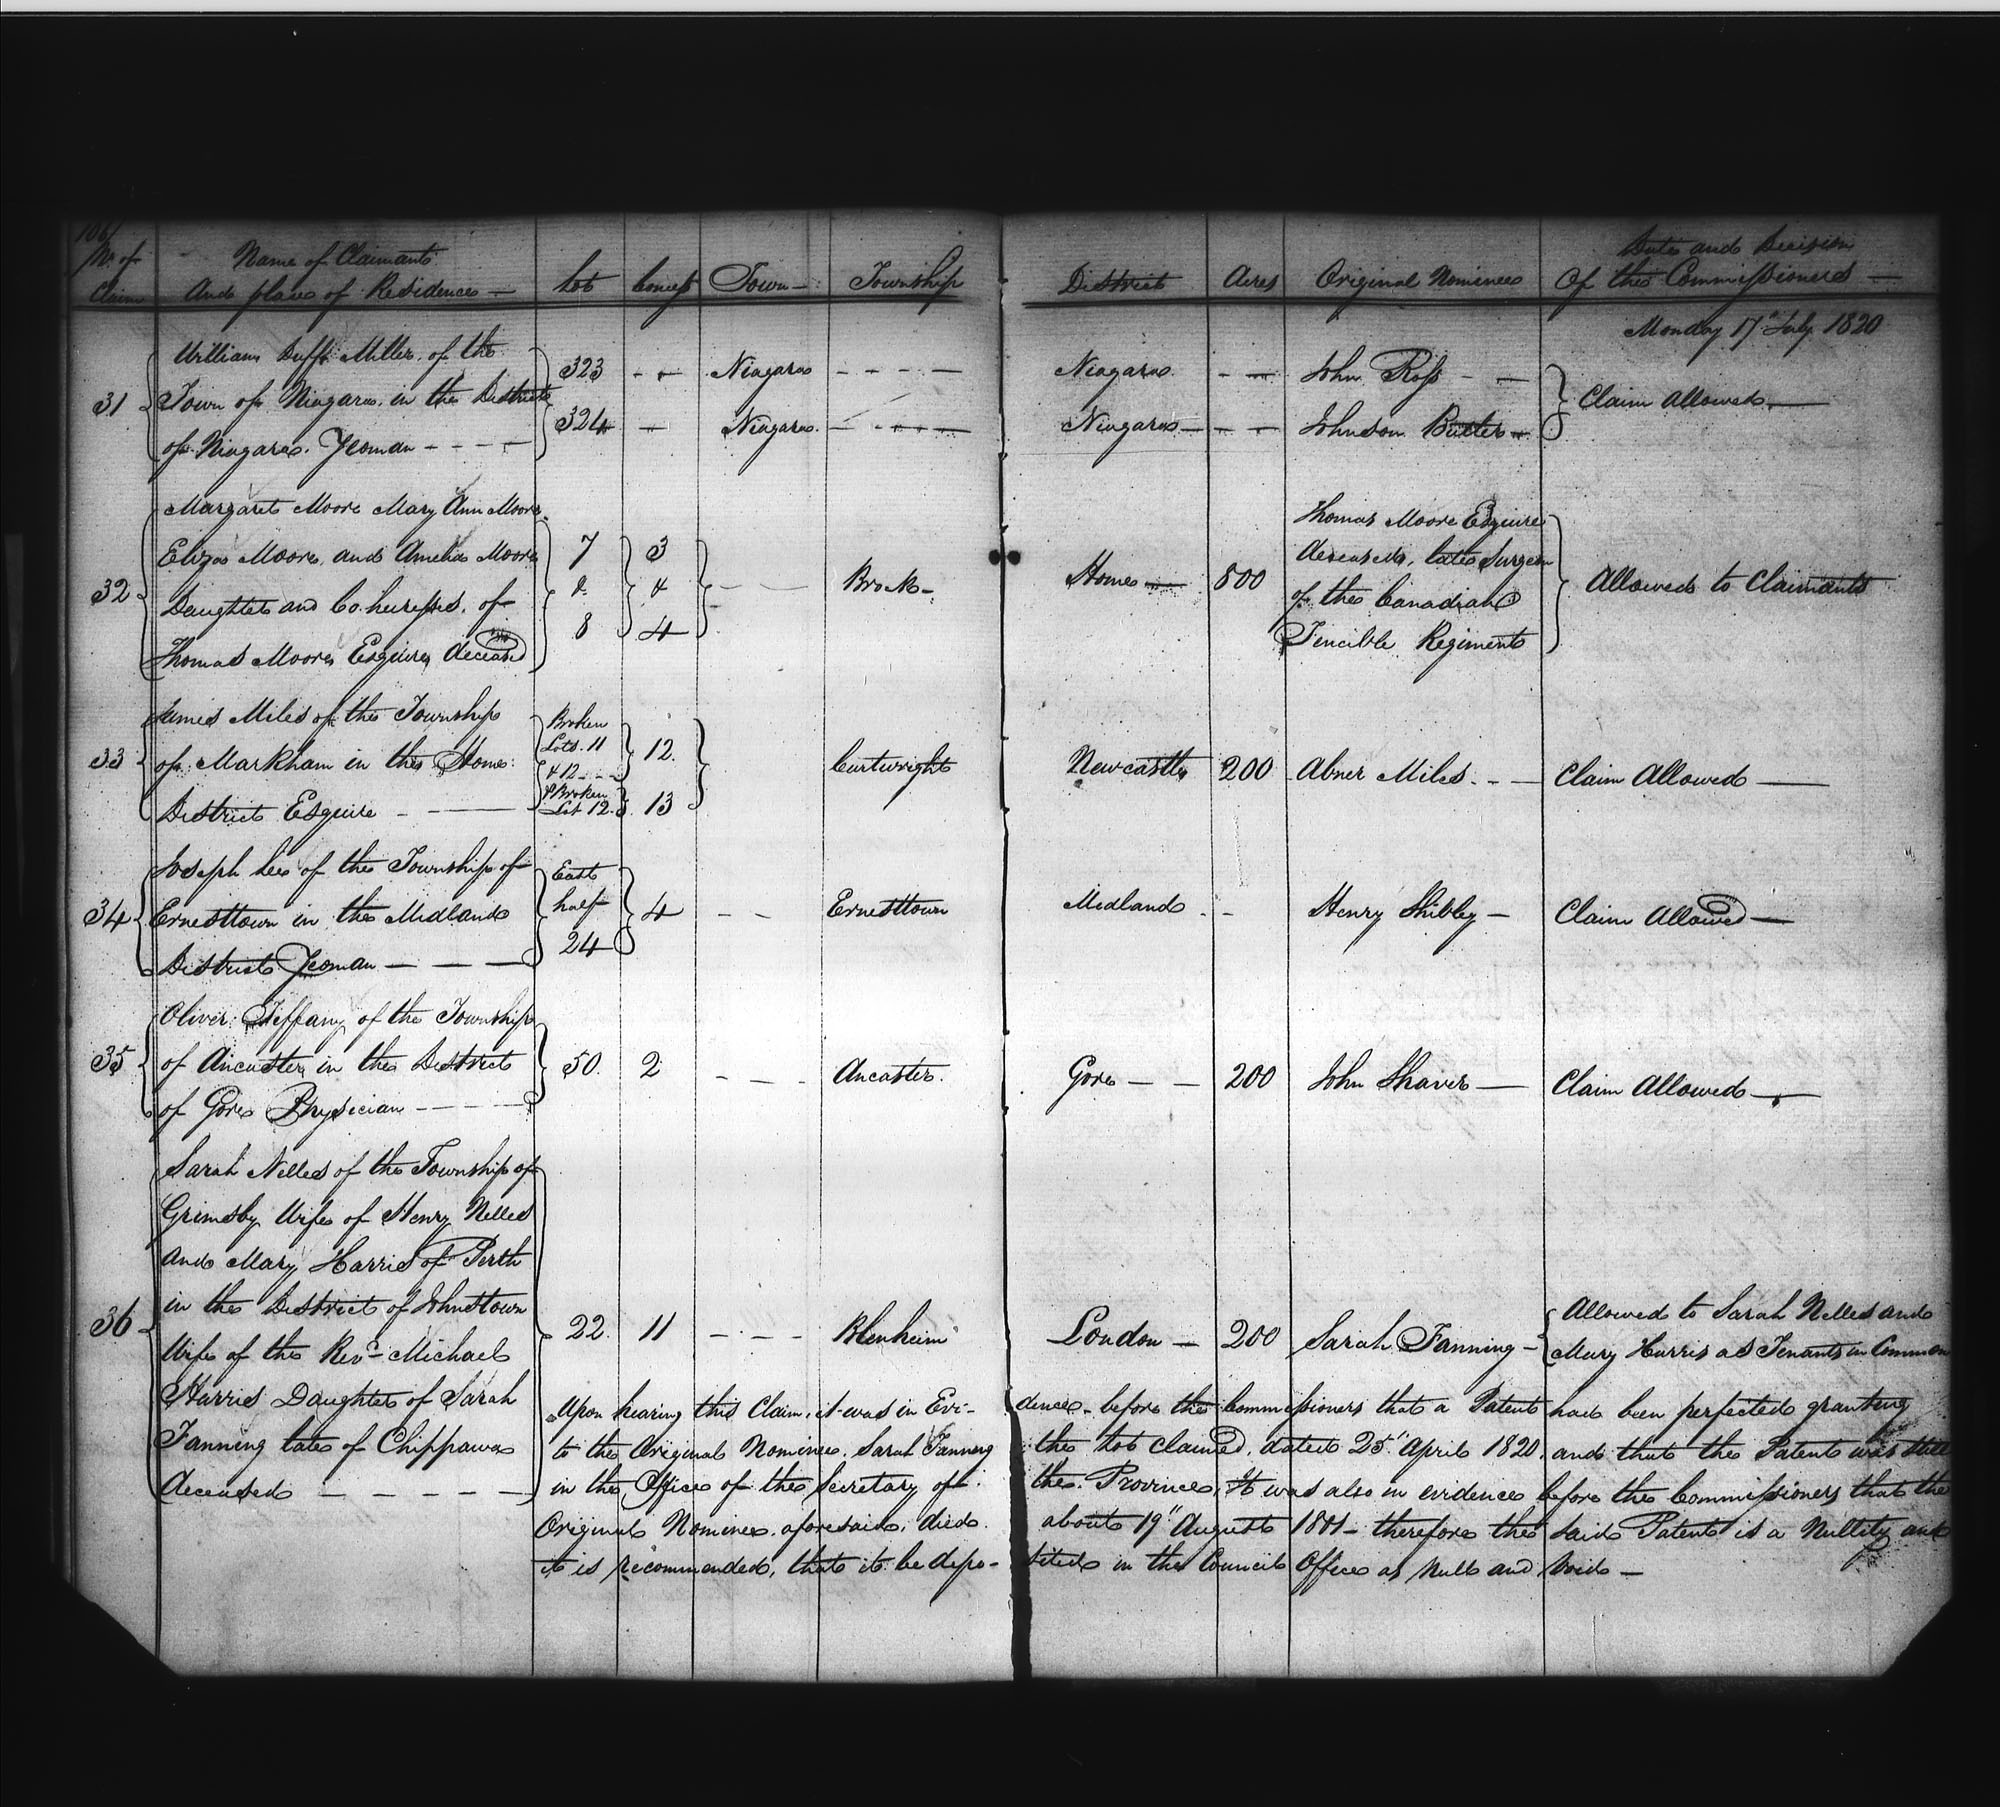 106
No. of Claim
Name of Claimants
And place of Residence —
Lot
Concess
Town —
Township
District
Acres
Original Nominee
Date and Decision
Of the Commissioners —
Monday 17" July 1820
31
William Duff Miller of the
Town of Niagara in the District
of Niagara. Yeoman - - - -
323 - - Niagara - - - - Niagara - - John Ross - -
324 - Niagara - - - - Niagara - - - Johnson Butler -
Claim Allowed —
32
Margaret Moore Mary Ann Moore
Eliza Moore and Amelia Moore
Daughters and Co. heiresses of
Thomas Moore Esquire deceased
7 & 8
3 & 4
- - Brock -
Home — 800
Thomas Moore Esquire
deceased, late Surgeon
of the Canadian
Fencible Regiment
Allowed to Claimants
33
James Miles of the Township
of Markham in the Home
District Esquire - —
Broken
Lots. 11
& 12 - - -
& Broken
Lot 12.
12.
13
Cartwright Newcastle 200 Abner Miles - - — Claim Allowed —
34
Joseph Lee of the Township of
Ernesttown in the Midland
District Yeoman — — — —
East
half
24
4 - - Ernesttown Midland - - Henry Shibley — Claim Allowed —
35
Oliver Tiffany of the Township
of Ancaster in the District
of Gore Physician - - - - -
50. 2 - - - Ancaster. Gore — — 200 John Shaver — Claim Allowed —
36
Sarah Nelles of the Township of
Grimsby Wife of Henry Nelles
and Mary Harris of Perth
in the District of Johnstown
Wife of the Revd. Michael
Harris Daughters of Sarah
Fanning late of Chippawa
deceased — — — — —
22. 11 - - - Blenheim London — 200 Sarah Fanning —
Allowed to Sarah Nelles and
Mary Harris as Tenants in Common
Upon hearing this Claim, it was in Evi- dence before the Commissioners that a Patent had been perfected granting
to the Original Nominee Sarah Fanning the Lot claimed, dated 25" April 1820. and that the Patent was still
in the Office of the Secretary of the Province, It was also in evidence before the Commissioners that the
Original Nominee aforesaid, died about 19" August 1801 — therefore the said Patent is a Nullity and
it is recommended, that it be depo- sited in the Council Office as Null and Void —